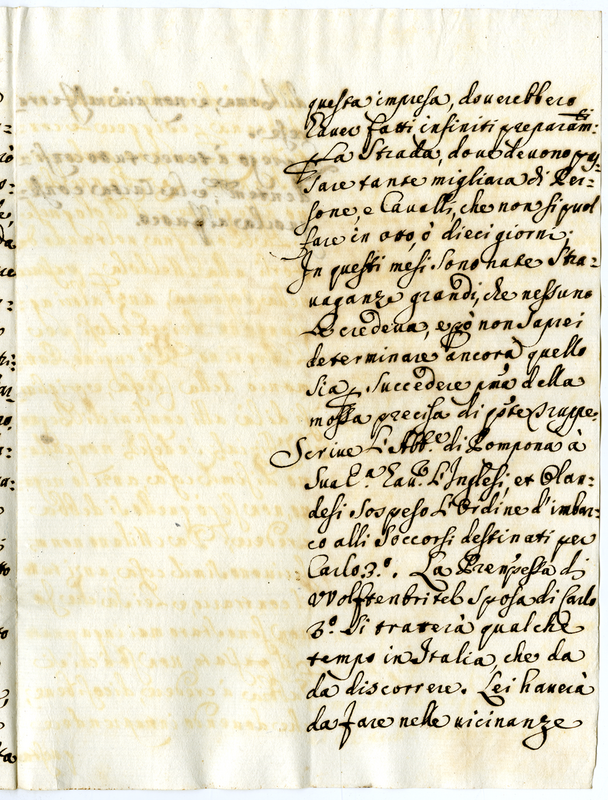 questa impresa, doverebbero
haver fatti infiniti preparam:ti
p la strada, dove devono pas-
sare tante migliara di Per-
sone, e Cavalli, che non si puol
fare in otto, ò dieci giorni.
In questi mesi sono nate stra-
vaganze grandi, che nessuno
le credeva, e pò non saprei
determinare ancorà quello
sia p succedere pma della
mossa precisa di q'ste Truppe.
Scrive l'Abb.e di Pomponà à
Sua E.a hav. l'Inglesi, et Olan-
desi sospeso l'ordine d'imbar-
co alli soccorsi destinati per
Carlo 3.o. La Prenpessa di
VVolffenbritel sposa di Carlo
3.o si traterà qualche
tempo in Italia, che da
da discorrere. Lei haverà
da fare nelle vicinanze